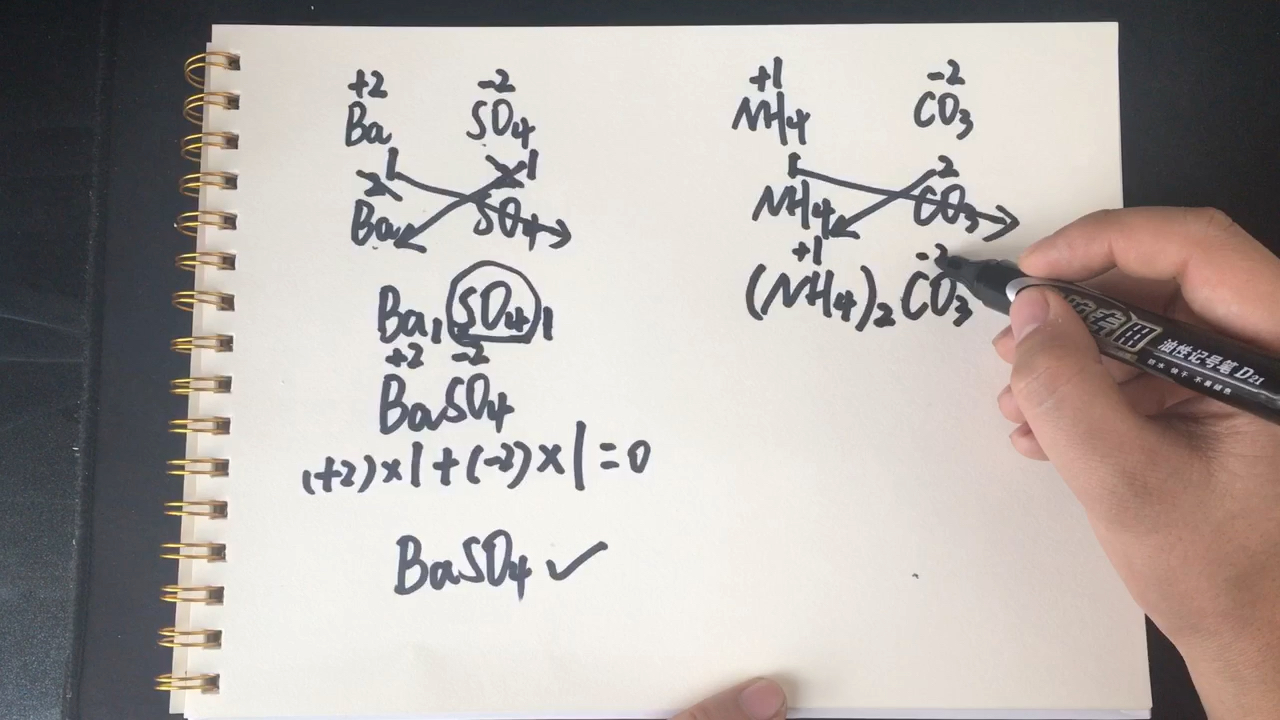 +2 -2
Ba SO4
2 1 2 1
Ba SO4
Ba1 SO4 1
+2 -2
BaSO4
(+2)×1+(-2)×1=0
BaSO4 ✓
+1 -2
NH4 CO3
1 2
NH4 CO3
+1 -2
(NH4)2CO3
专用
油性记号笔 D21
防水 快干 不易褪色